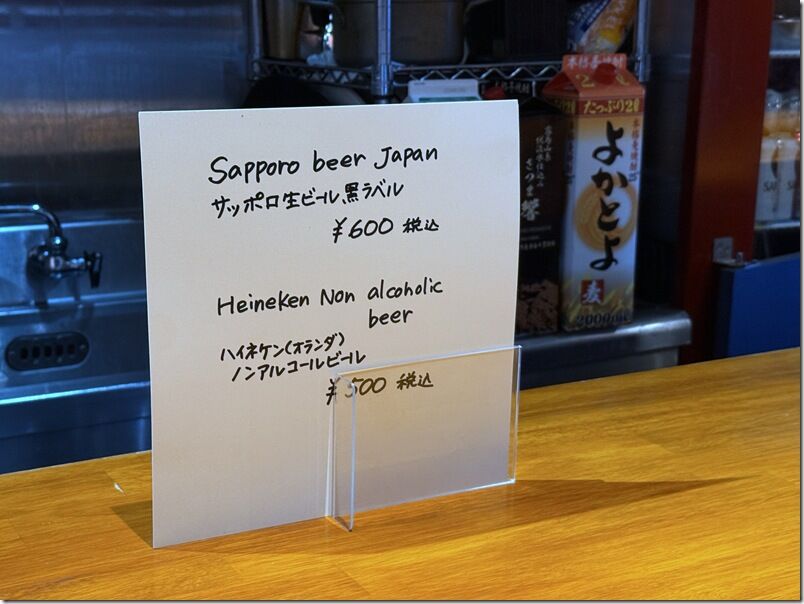 Sapporo beer Japan
サッポロ生ビール黒ラベル
¥600 税込
Heineken Non alcoholic
beer
ハイネケン(オランダ)
ノンアルコールビール
¥500 税込
本格麦焼酎
たっぷり2ℓ
よかとよ
麦
2000ml